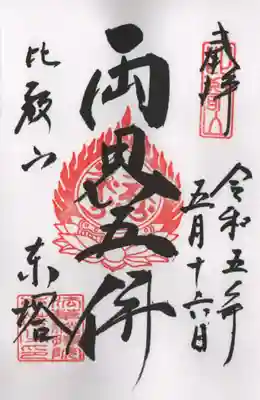 奉拝
令和五年
五月十六日
両界五佛
比叡山
東塔